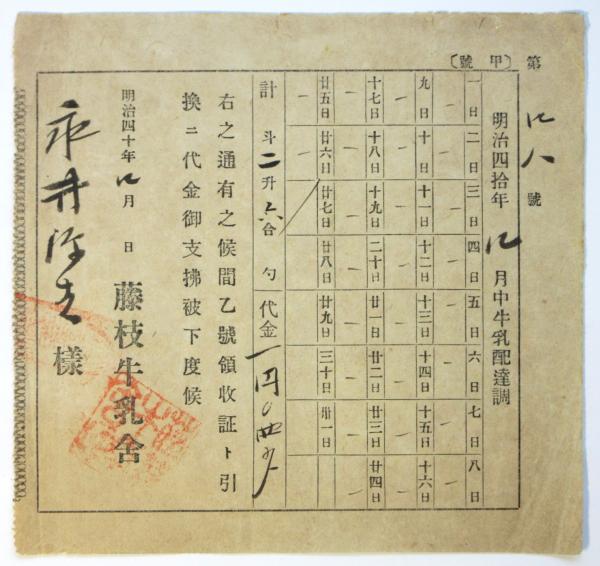 第 号 〔甲號〕
明治四拾年 月中牛乳配達調
一日 二日 三日 四日 五日 六日 七日 八日
九日 十日 十一日 十二日 十三日 十四日 十五日 十六日
十七日 十八日 十九日 二十日 廿一日 廿二日 廿三日 廿四日
廿五日 廿六日 廿七日 廿八日 廿九日 三十日 卅一日
計 斗二升六合 勺 代金一円〇四戋
右之通有之候間乙號領收証ト引
換ニ代金御支拂被下度候
明治四十年 月 日 藤枝牛乳舍
永井 様